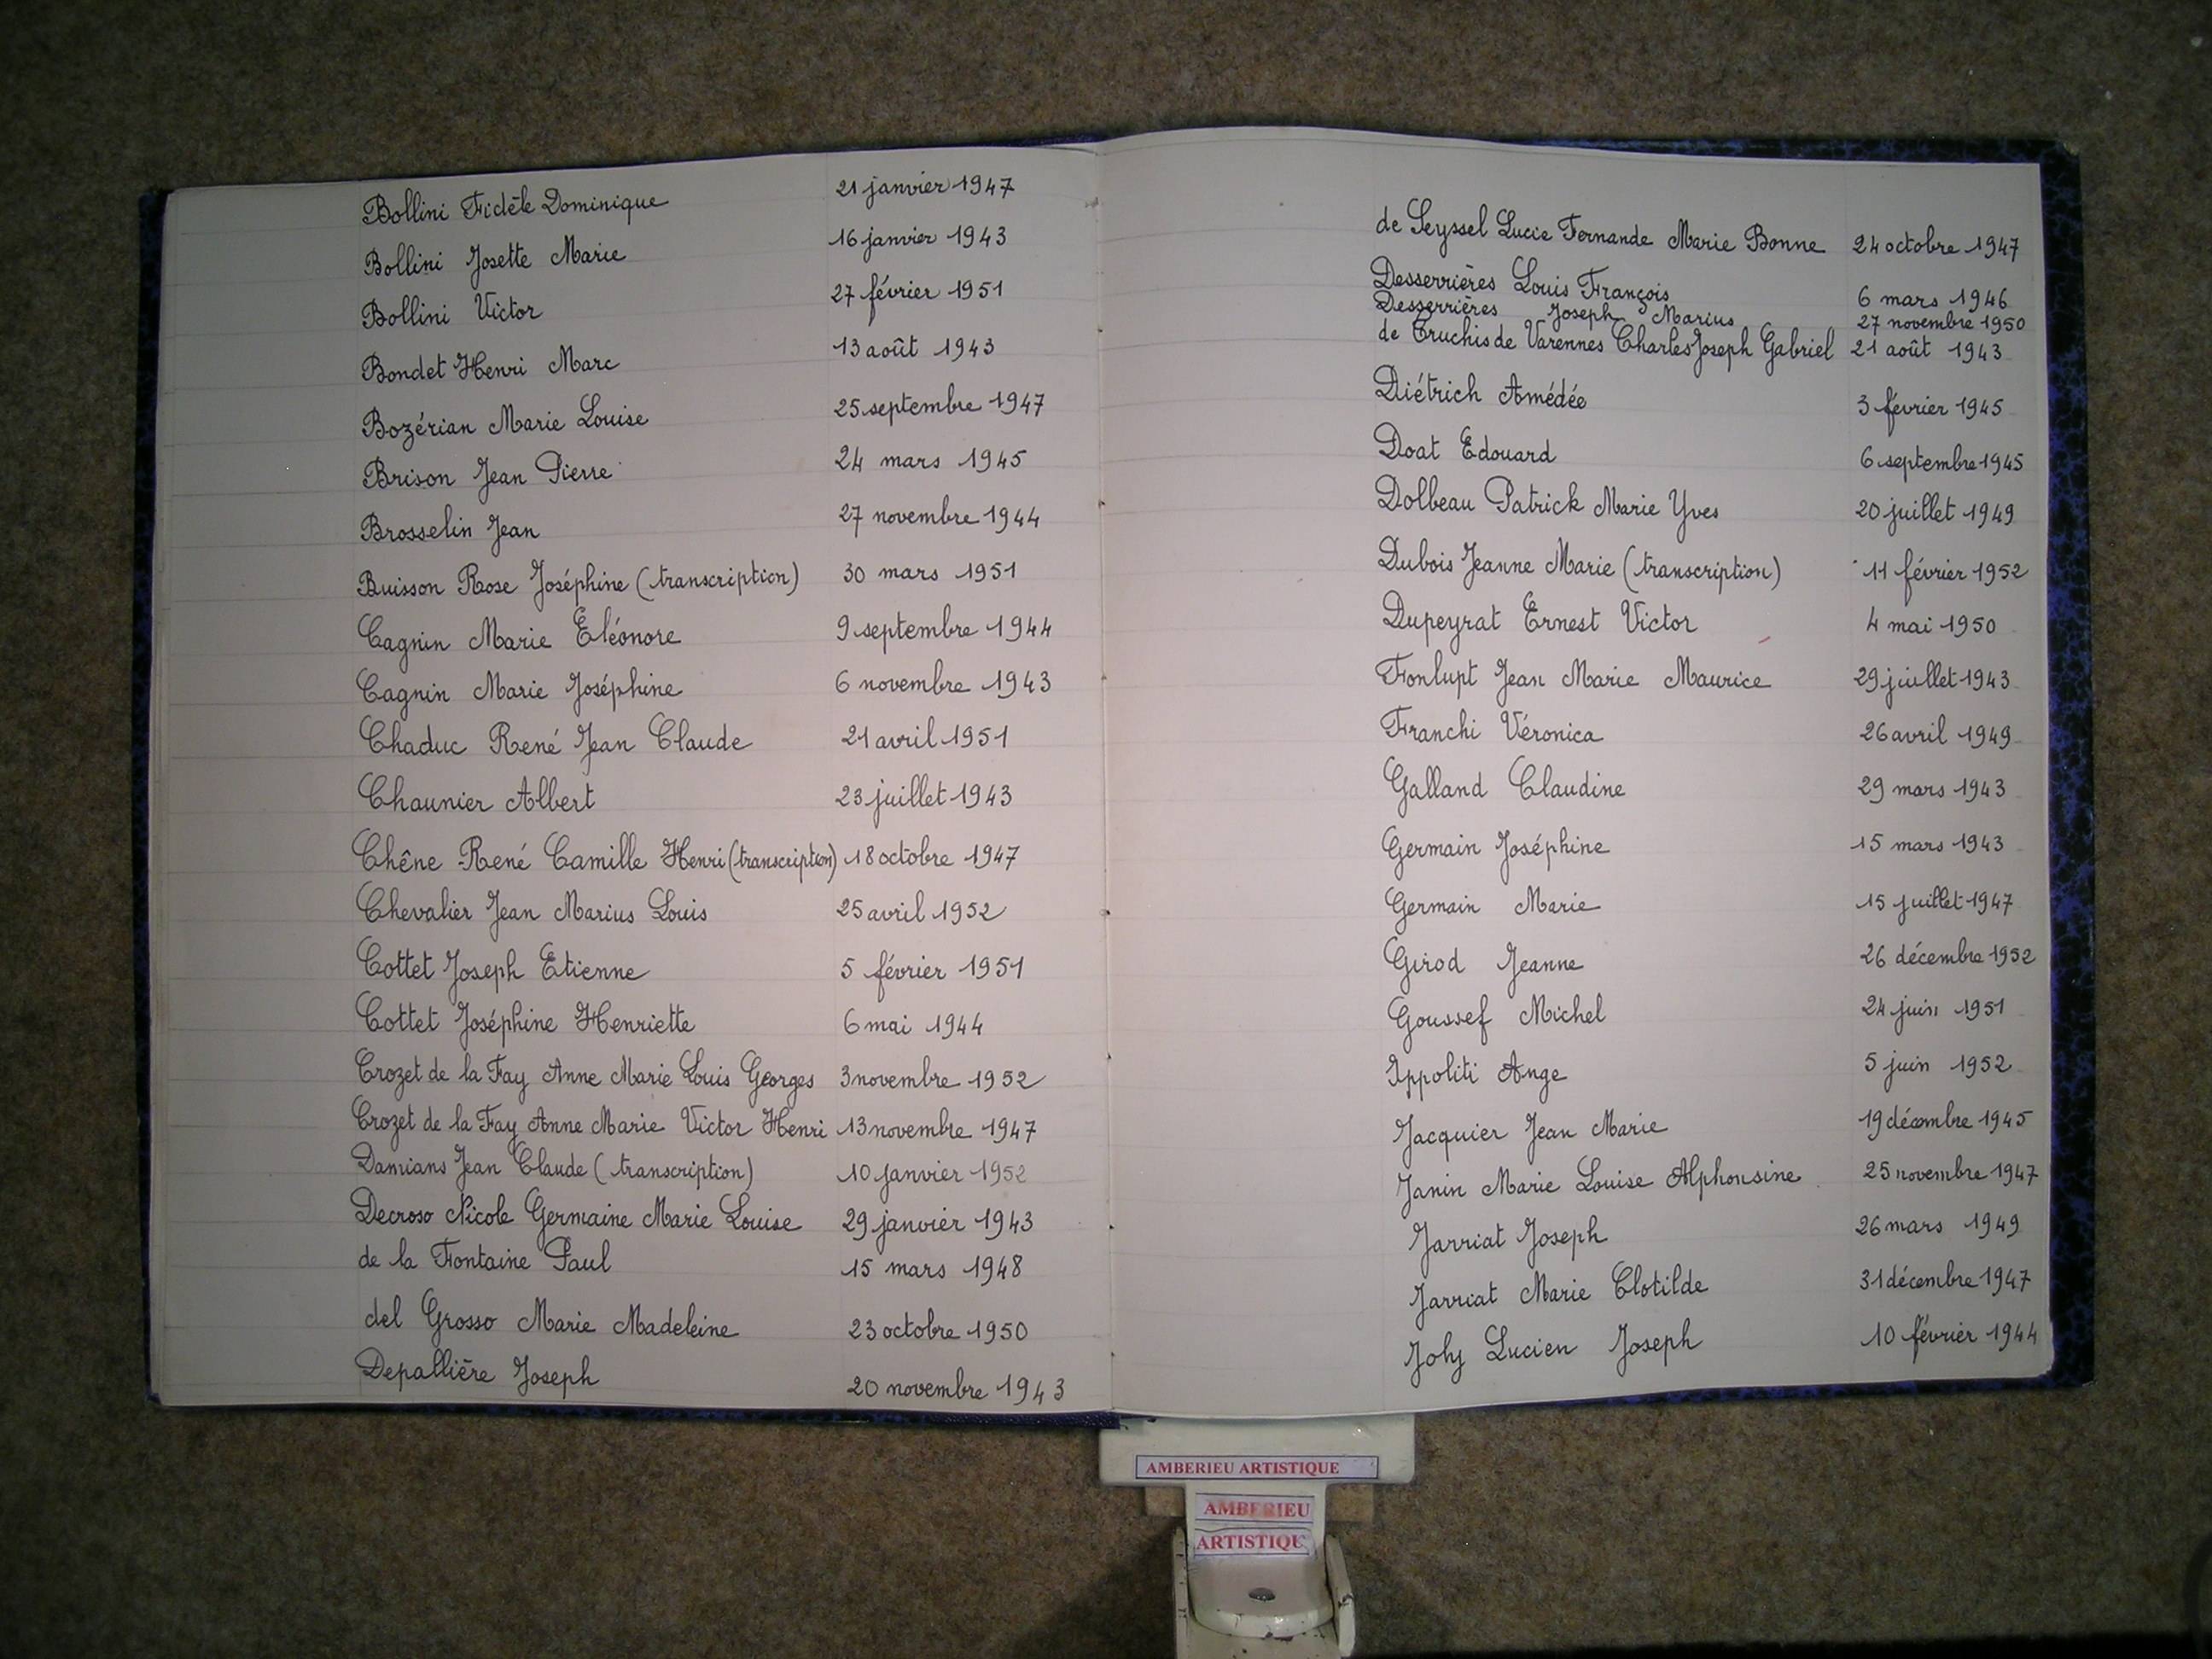 Bollini Fidèle Dominique 21 janvier 1947
Bollini Josette Marie 16 janvier 1943
Bollini Victor 27 février 1951
Bondet Henri Marc 13 août 1943
Bozérian Marie Louise 25 septembre 1947
Brison Jean Pierre 24 mars 1945
Brosselin Jean 27 novembre 1944
Buisson Rose Joséphine (transcription) 30 mars 1951
Cagnin Marie Eléonore 9 septembre 1944
Cagnin Marie Joséphine 6 novembre 1943
Chaduc René Jean Claude 21 avril 1951
Chaunier Albert 23 juillet 1943
Chêne René Camille Henri (transcription) 18 octobre 1947
Chevalier Jean Marius Louis 25 avril 1952
Cottet Joseph Etienne 5 février 1951
Cottet Joséphine Henriette 6 mai 1944
Crozet de la Fay Anne Marie Louis Georges 3 novembre 1952
Crozet de la Fay Anne Marie Victor Henri 13 novembre 1947
Damians Jean Claude (transcription) 10 janvier 1952
Decroso Nicole Germaine Marie Louise 29 janvier 1943
de la Fontaine Paul 15 mars 1948
del Grosso Marie Madeleine 23 octobre 1950
Depallière Joseph 20 novembre 1943
de Seyssel Lucie Fernande Marie Bonne 24 octobre 1947
Desserrières Louis François 6 mars 1946
Desserrières Joseph Marius 27 novembre 1950
de Truchis de Varennes Charles Joseph Gabriel 21 août 1943
Diétrich Amédée 3 février 1945
Doat Edouard 6 septembre 1945
Dolbeau Patrick Marie Yves 20 juillet 1949
Dubois Jeanne Marie (transcription) 11 février 1952
Dupeyrat Ernest Victor 4 mai 1950
Fonlupt Jean Marie Maurice 29 juillet 1943
Franchi Véronica 26 avril 1949
Galland Claudine 29 mars 1943
Germain Joséphine 15 mars 1943
Germain Marie 15 juillet 1947
Girod Jeanne 26 décembre 1952
Goussef Michel 24 juin 1951
Ippoliti Ange 5 juin 1952
Jacquier Jean Marie 19 décembre 1945
Janin Marie Louise Alphonsine 25 novembre 1947
Jarriat Joseph 26 mars 1949
Jarriat Marie Clotilde 31 décembre 1947
Joly Lucien Joseph 10 février 1944
AMBERIEU ARTISTIQUE
AMBERIEU
ARTISTIQU